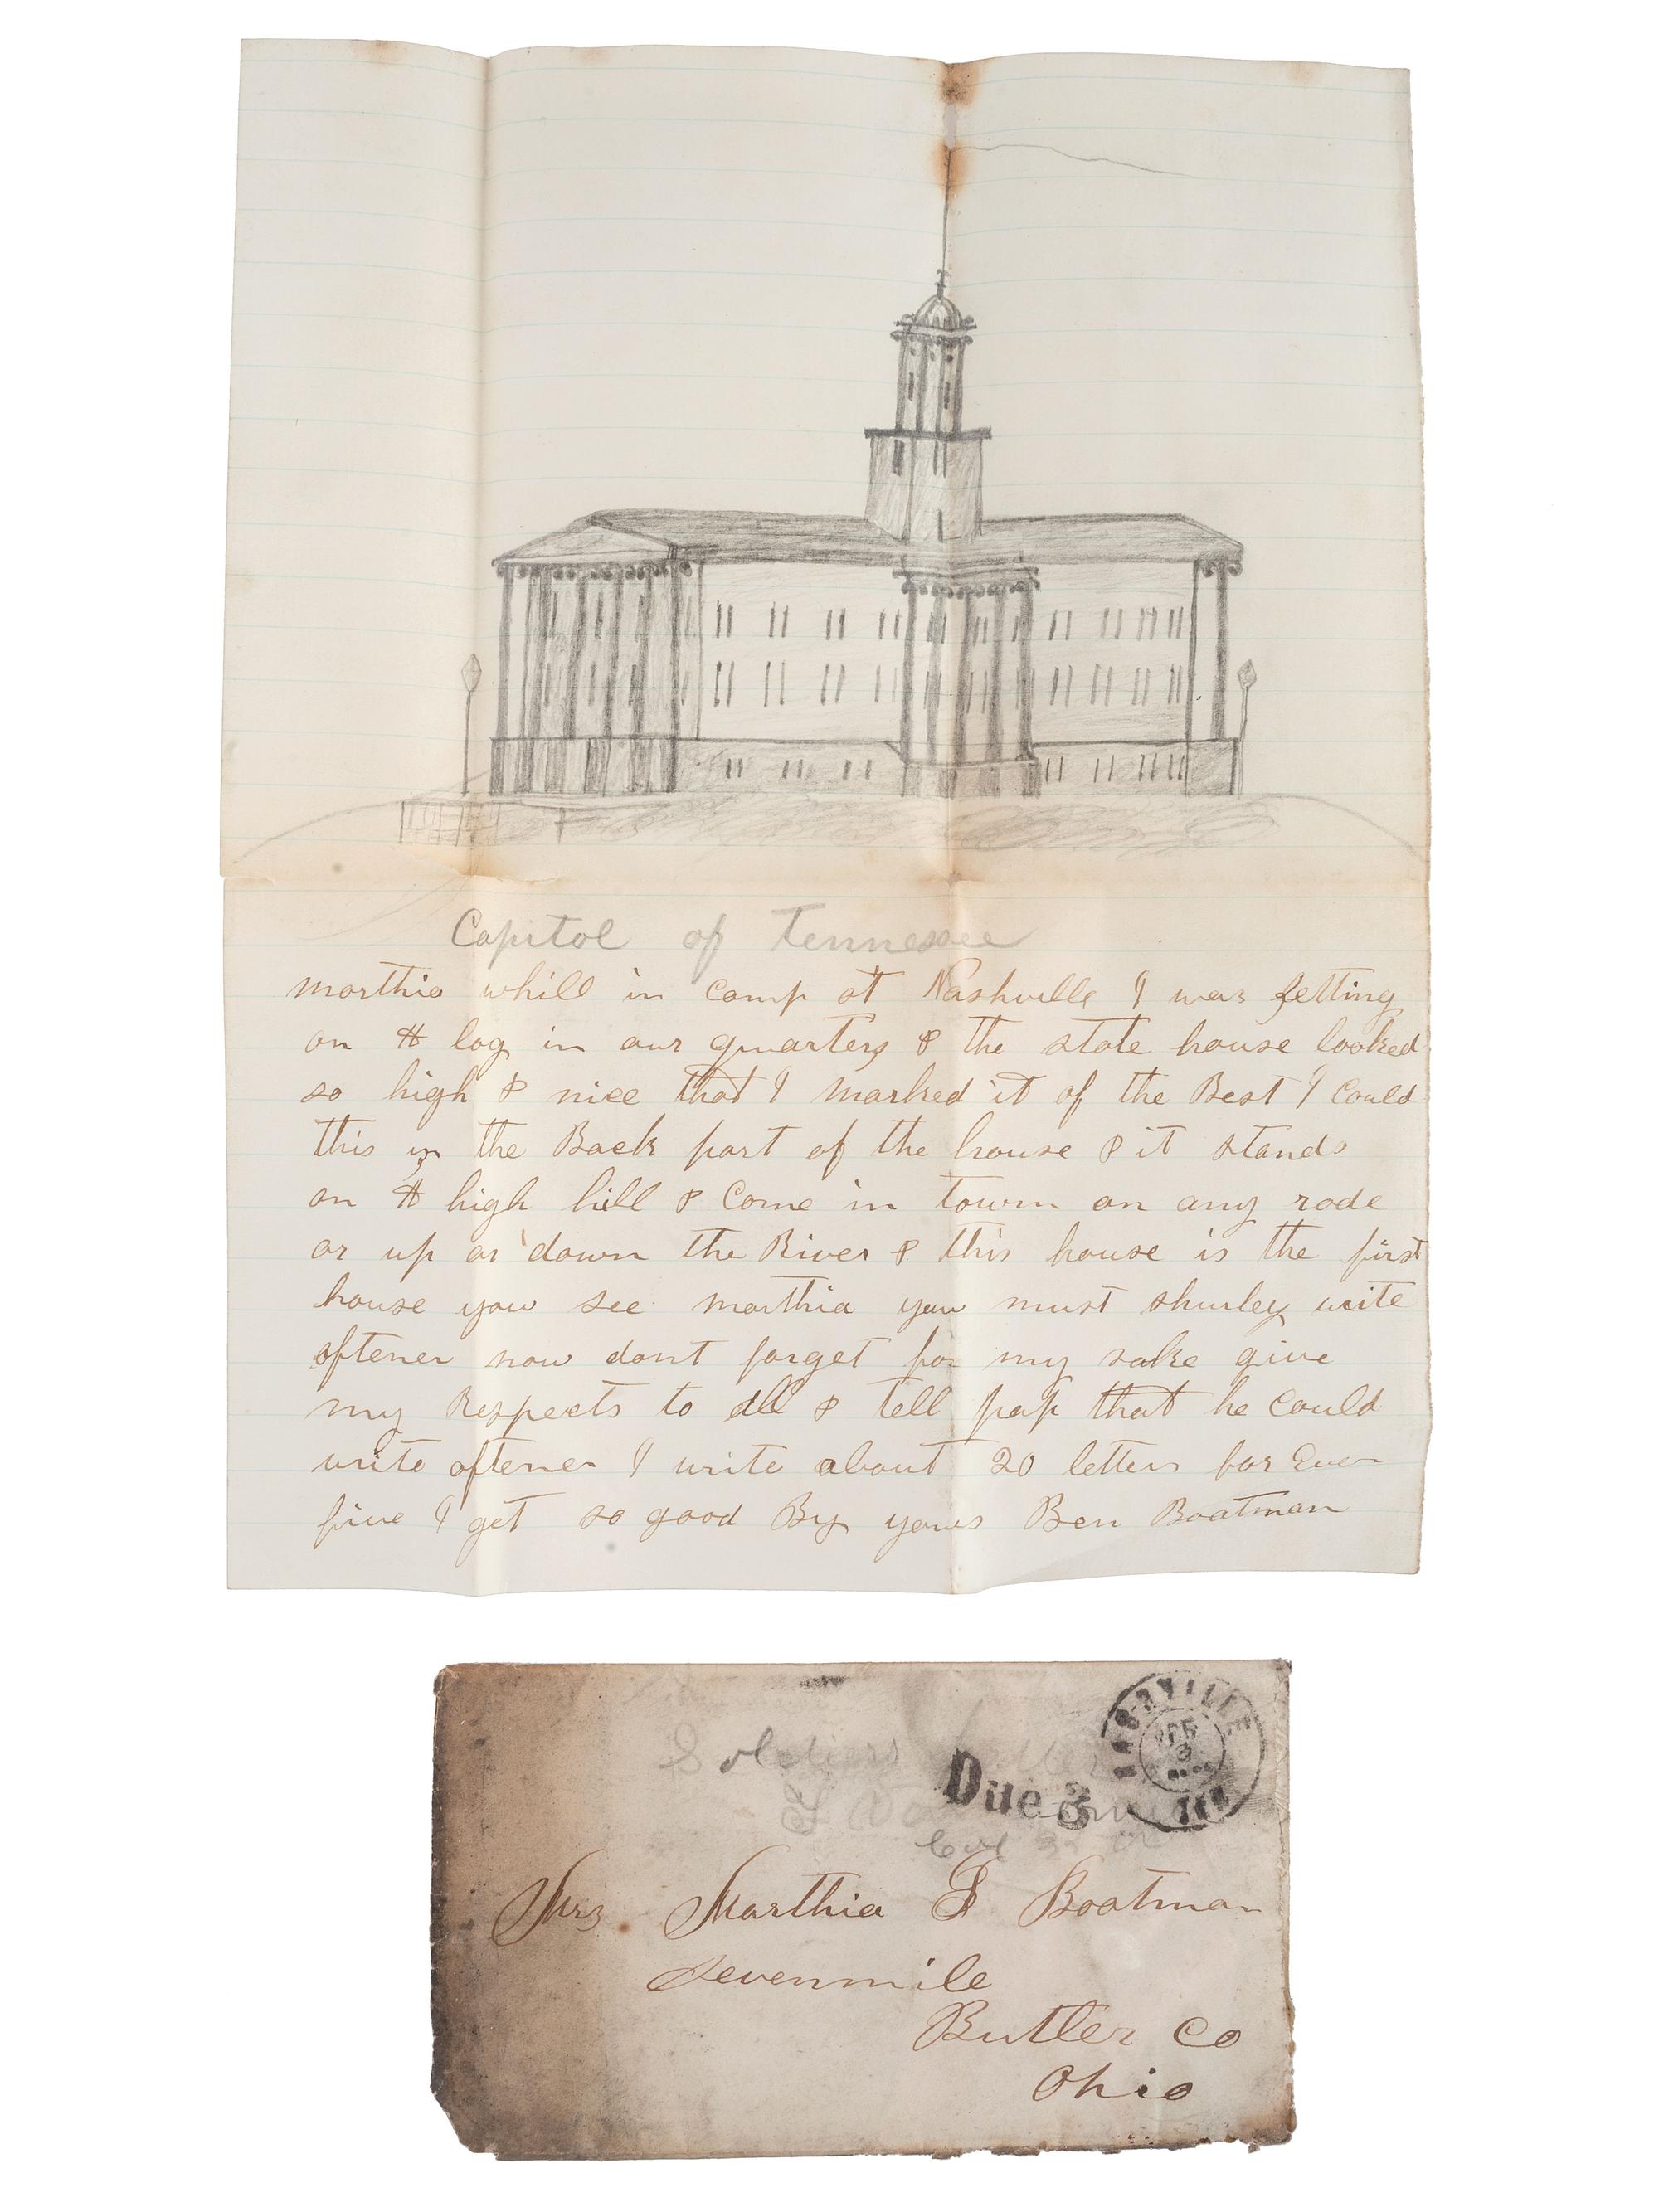 Capitol of Tennessee
marthia whill in camp at Nashville I was setting
on A log in our quarters & the state house looked
so high & nice that I marked it of the Best I Could
this is the Back part of the house & it stands
on A high hill & Come in town on any rode
or up or down the River & this house is the first
house you see marthia you must shurley write
oftener now dont forget for my sake give
my Respects to all & tell pap that he could
write oftener I write about 20 letters for Ever
five I get so good By yours Ben Boatman
Soldiers letter
Due 3
NASHVILLE
FEB
3
Mrs Marthia J Boatman
Sevenmile
Butler Co
Ohio